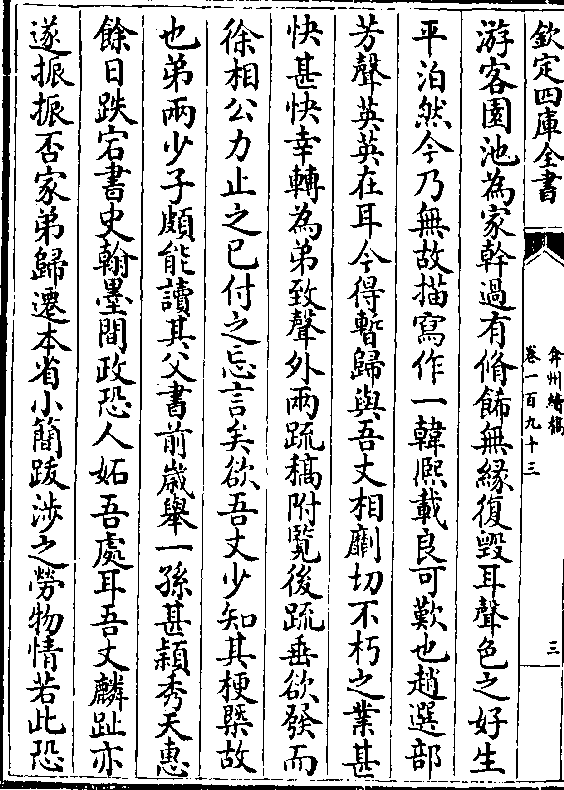 欽定四庫全書
弇州續稿
卷一百九十三
三
游客園池為家幹過有脩飾無緣復毀耳聲色之好生
平泊然今乃無故描寫作一韓熈載良可歎也趙選部
芳聲英英在耳今得暫歸與吾丈相劘切不朽之業甚
快甚快幸轉為弟致聲外兩疏稿附覧後疏垂欲發而
徐相公力止之已付之忘言矣欲吾丈少知其梗槩故
也弟兩少子頗能讀其父書前嵗舉一孫甚穎秀天惠
餘日跌宕書史翰墨間政恐人妬吾處耳吾丈麟趾亦
遂振振否家弟歸遷本省小簡跋涉之勞物情若此恐